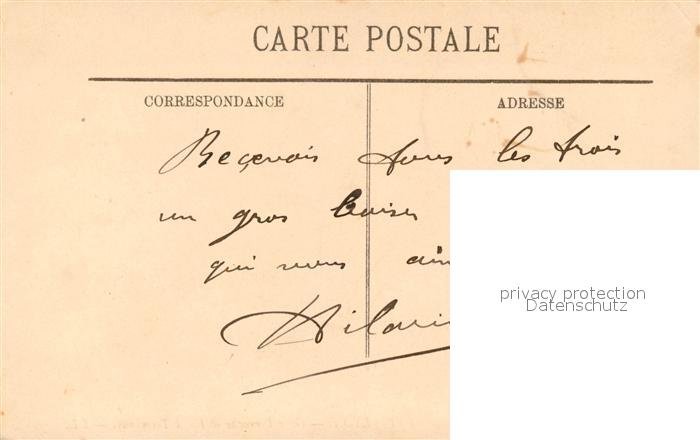 CARTE POSTALE
CORRESPONDANCE ADRESSE
Reçevois tous les trois
un gros baiser
qui vous
privacy protection
Datenschutz